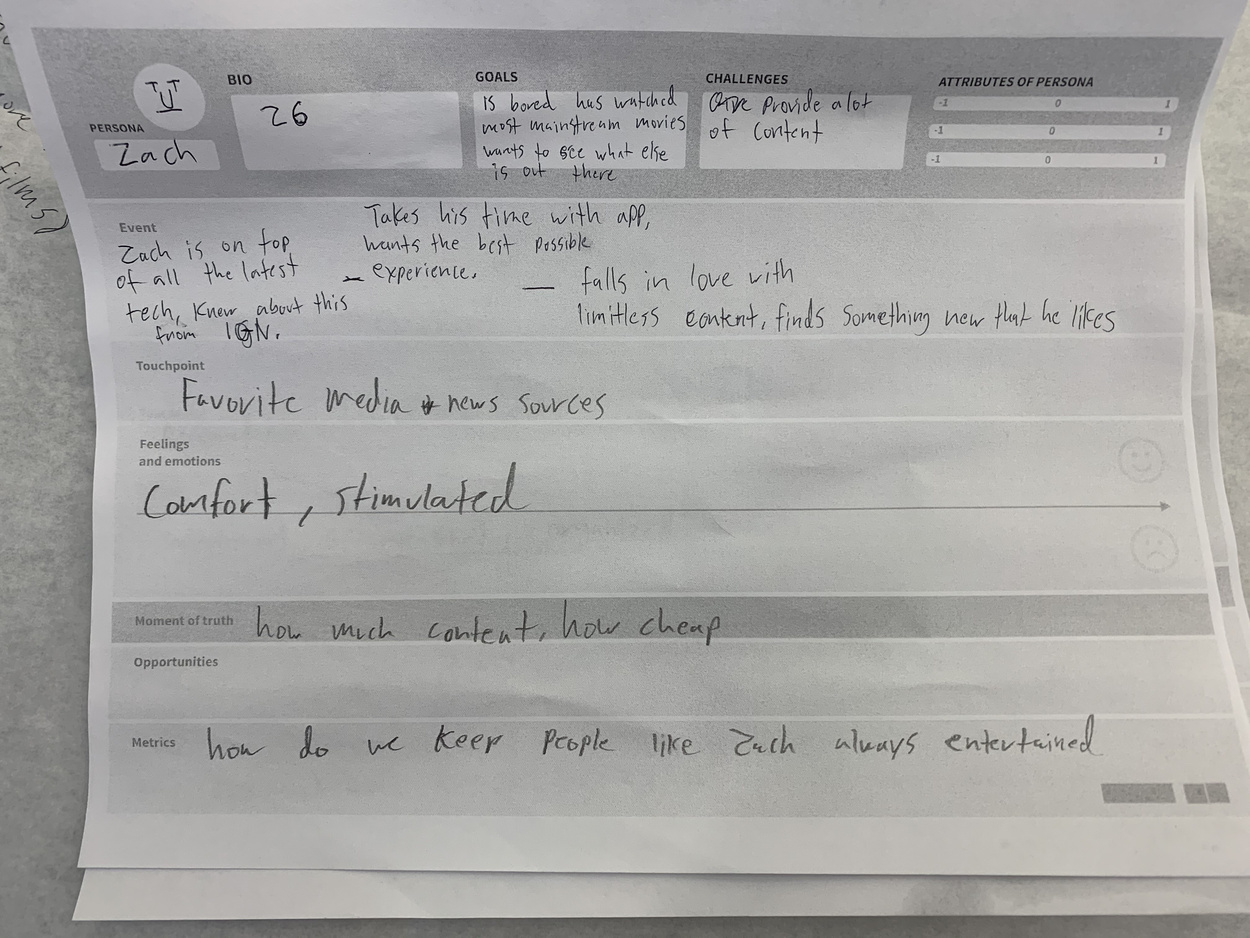 PERSONA
Zach
BIO
26
GOALS
is bored has watched
most mainstream movies
wants to see what else
is out there
CHALLENGES
provide a lot
of content
ATTRIBUTES OF PERSONA
-1 0 1
-1 0 1
-1 0 1
Event
Zach is on top
of all the latest
tech, knew about this
from IGN.
Takes his time with app,
wants the best possible
— experience.
— falls in love with
limitless content, finds something new that he likes
Touchpoint
Favorite media + news sources
Feelings
and emotions
Comfort, stimulated
Moment of truth
how much content, how cheap
Opportunities
Metrics
how do we keep people like Zach always entertained
films)